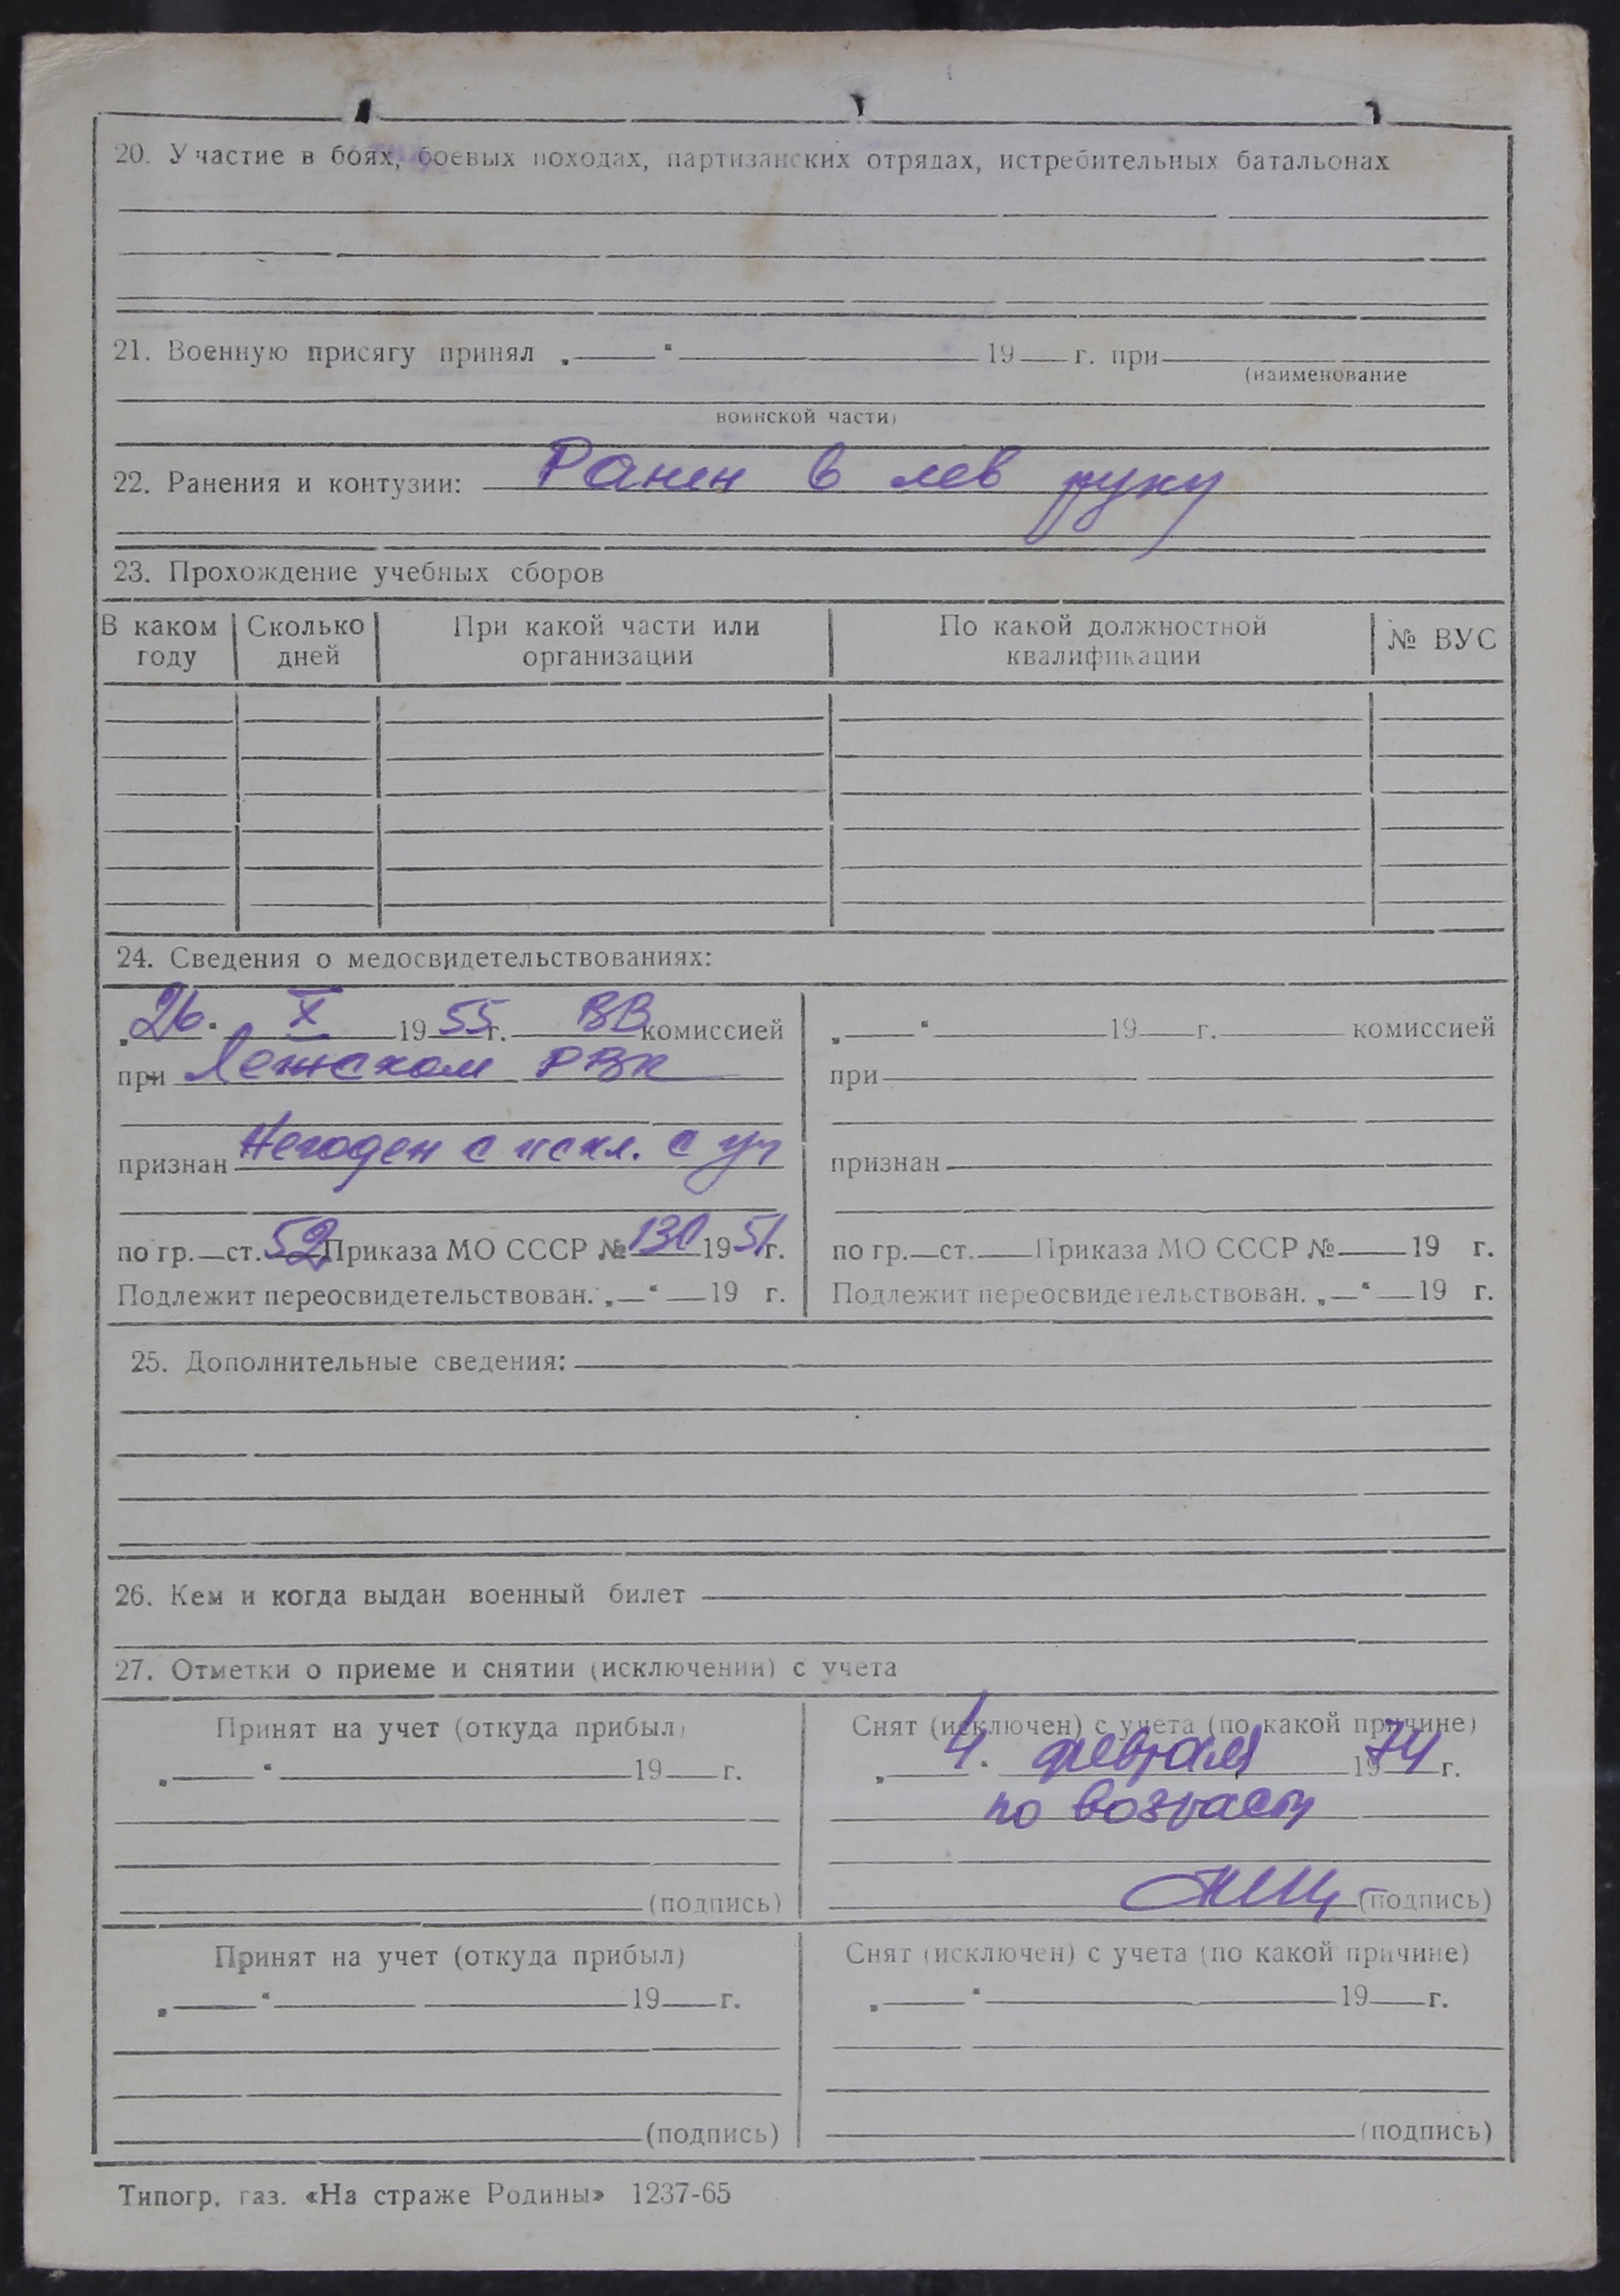 20. Участие в боях, боевых походах, партизанских отрядах, истребительных батальонах
21. Военную присягу принял „ “ 19 г. при
(наименование
воинской части)
22. Ранения и контузии: Ранен в лев руку
23. Прохождение учебных сборов
В каком году Сколько дней При какой части или организации По какой должностной квалификации № ВУС
24. Сведения о медосвидетельствованиях:
„26. X 1955г. ВВ комиссией
при Лежском РВК
признан Негоден с искл. с уч
по гр. ст. 52 Приказа МО СССР № 130 1951г.
Подлежит переосвидетельствован. „ “ 19 г.
„ “ 19 г. комиссией
при
признан
по гр. ст. Приказа МО СССР № 19 г.
Подлежит переосвидетельствован. „ “ 19 г.
25. Дополнительные сведения:
26. Кем и когда выдан военный билет
27. Отметки о приеме и снятии (исключении) с учета
Принят на учет (откуда прибыл)
„ “ 19 г.
(подпись)
Снят (исключен) с учета (по какой причине)
„ 4. февраля 1974 г.
по возрасту
(подпись)
Принят на учет (откуда прибыл)
„ “ 19 г.
(подпись)
Снят (исключен) с учета (по какой причине)
„ “ 19 г.
(подпись)
Типогр. газ. «На страже Родины» 1237-65